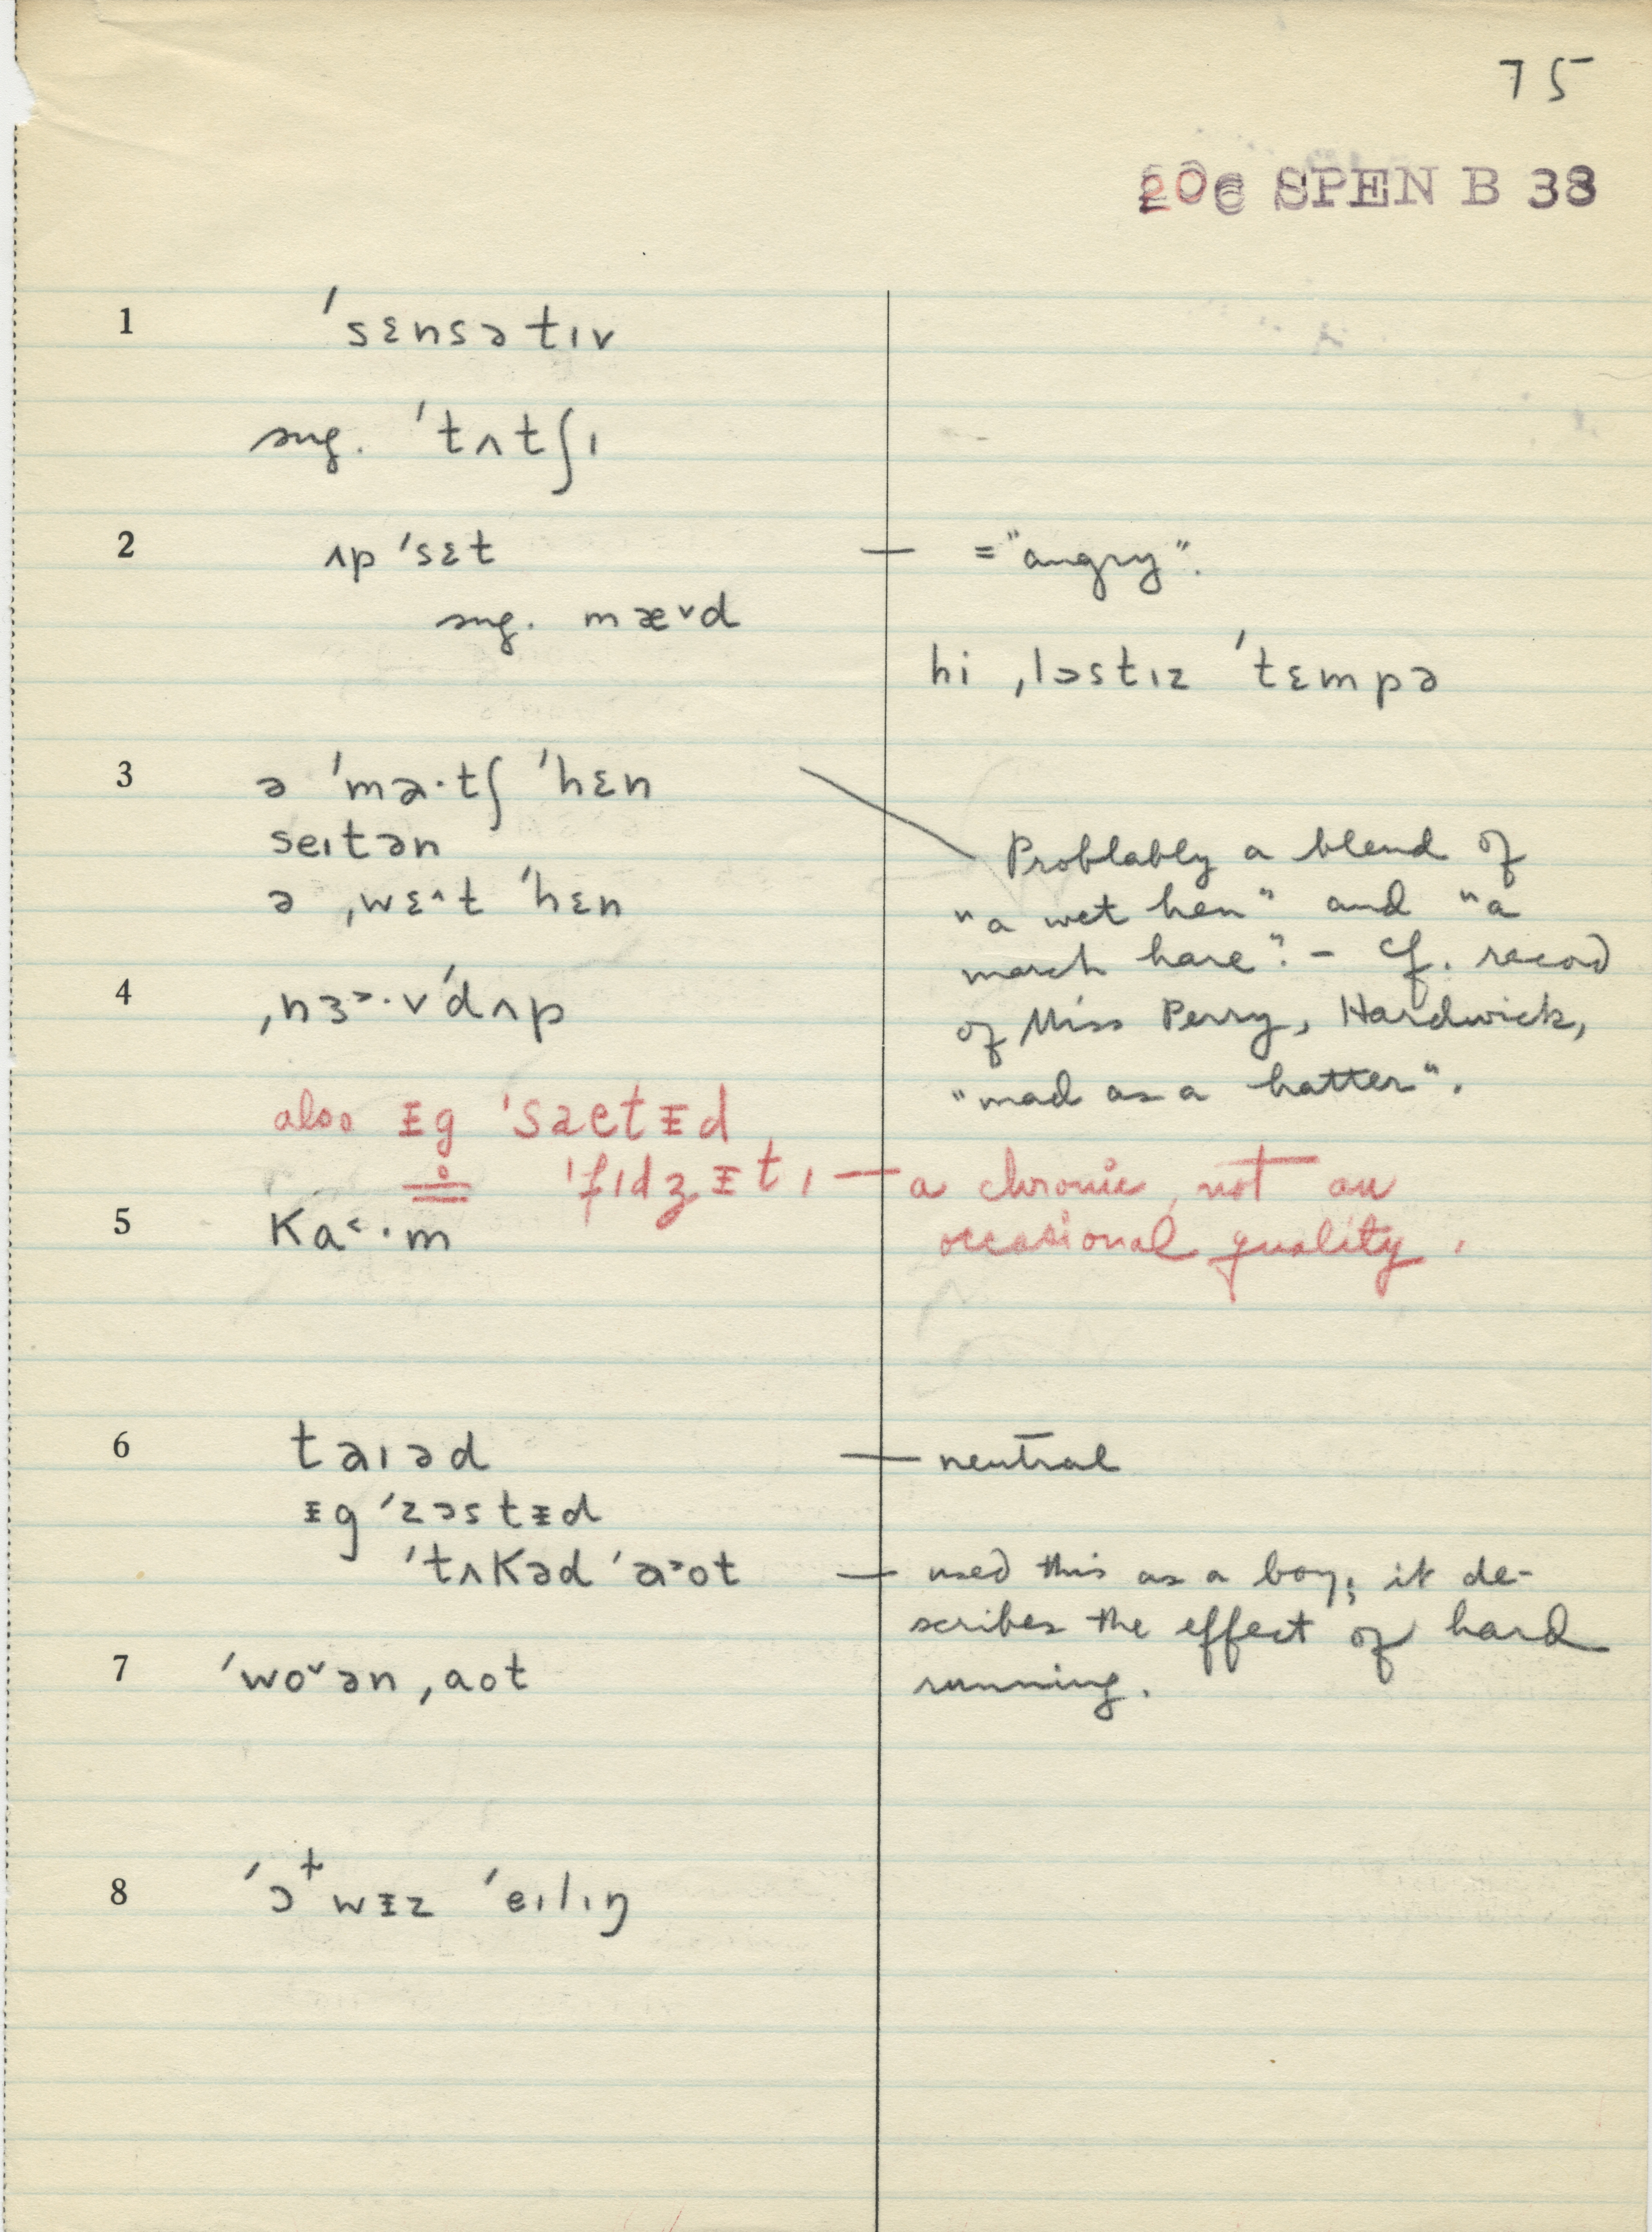 75
20c SPEN B 38
1 ˈsɛnsətɪv
sug. ˈtʌtʃɪ
2 ʌpˈsɛt — = "angry".
sug. mæ˅d
hi ˌlɔstɪz ˈtɛmpə
3 ə ˈma·tʃ ˈhɛn
seɪtən
ə ˌwɛ˄t ˈhɛn
Problably a blend of
"a wet hen" and "a
march hare". – Cf. record
of Miss Perry, Hardwick,
"mad as a hatter".
4 ˌnɜ˃·vˈdʌp
also ᵻgˈsaɛtᵻd
≐ ˈfɪdʒᵻtɪ — a chronic, not an
occasional quality.
5 ka˂·m
6 taɪəd — neutral
ᵻgˈzɔstᵻd
ˈtʌkəd ˈa˃ot — used this as a boy; it de-
scribes the effect of hard
running.
7 ˈwo˅ən ˌaot
8 ˈɔɫwᵻz ˈeɪlɪŋ